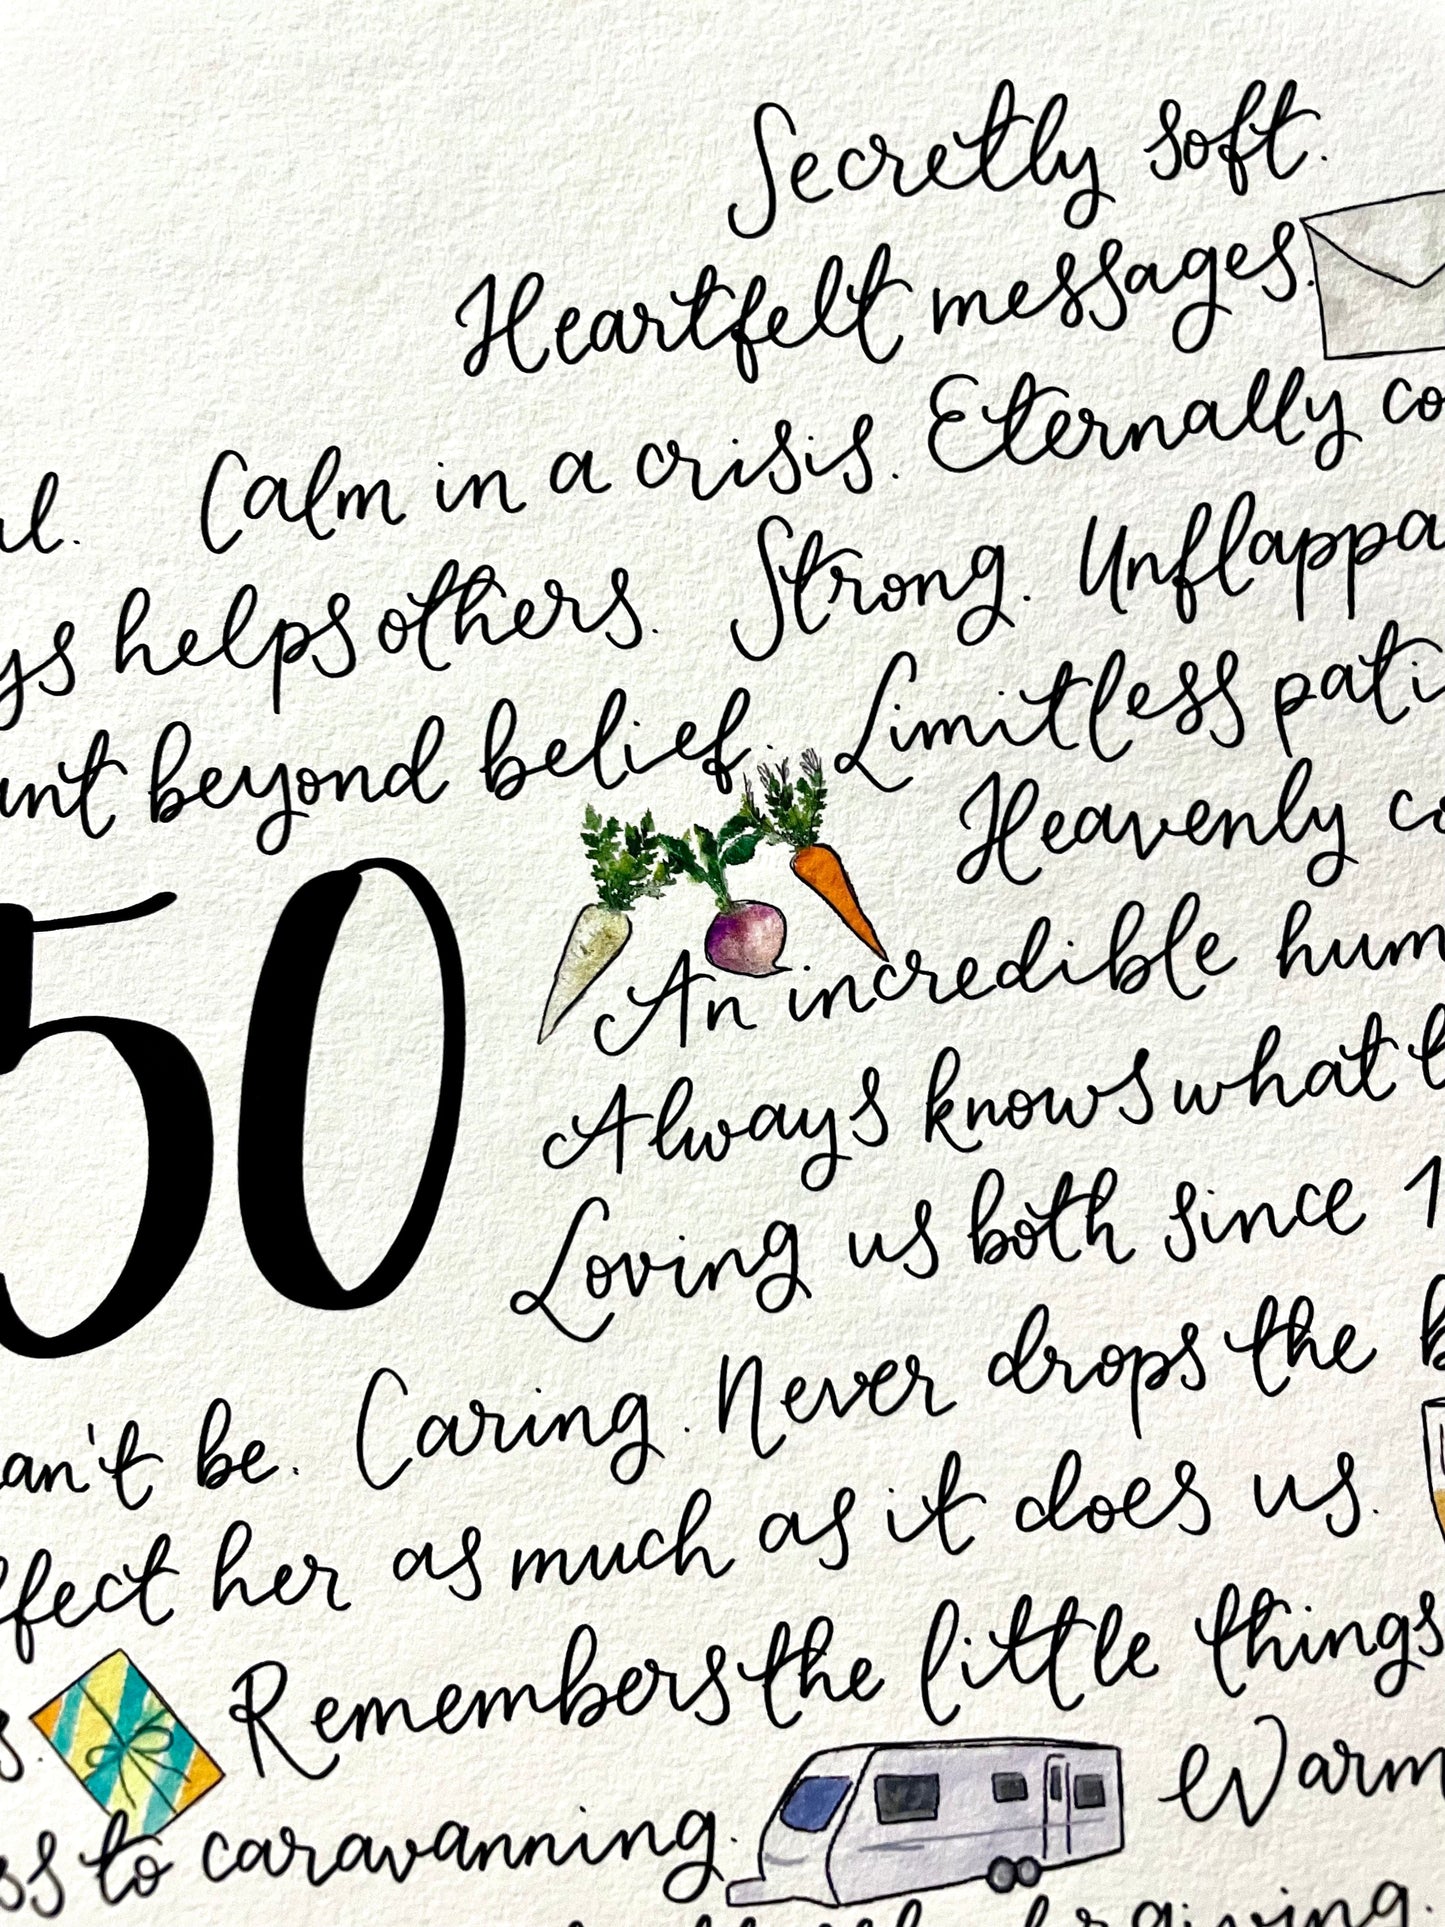 Secretly soft.
Heartfelt messages.
Calm in a crisis. Eternally
helps others. Strong.
beyond belief. Limitless
Heavenly
50
An incredible
Always knows what
Loving us both since
can't be. Caring. Never drops the
her as much as it does us.
Remembers the little things
to caravanning. Warm